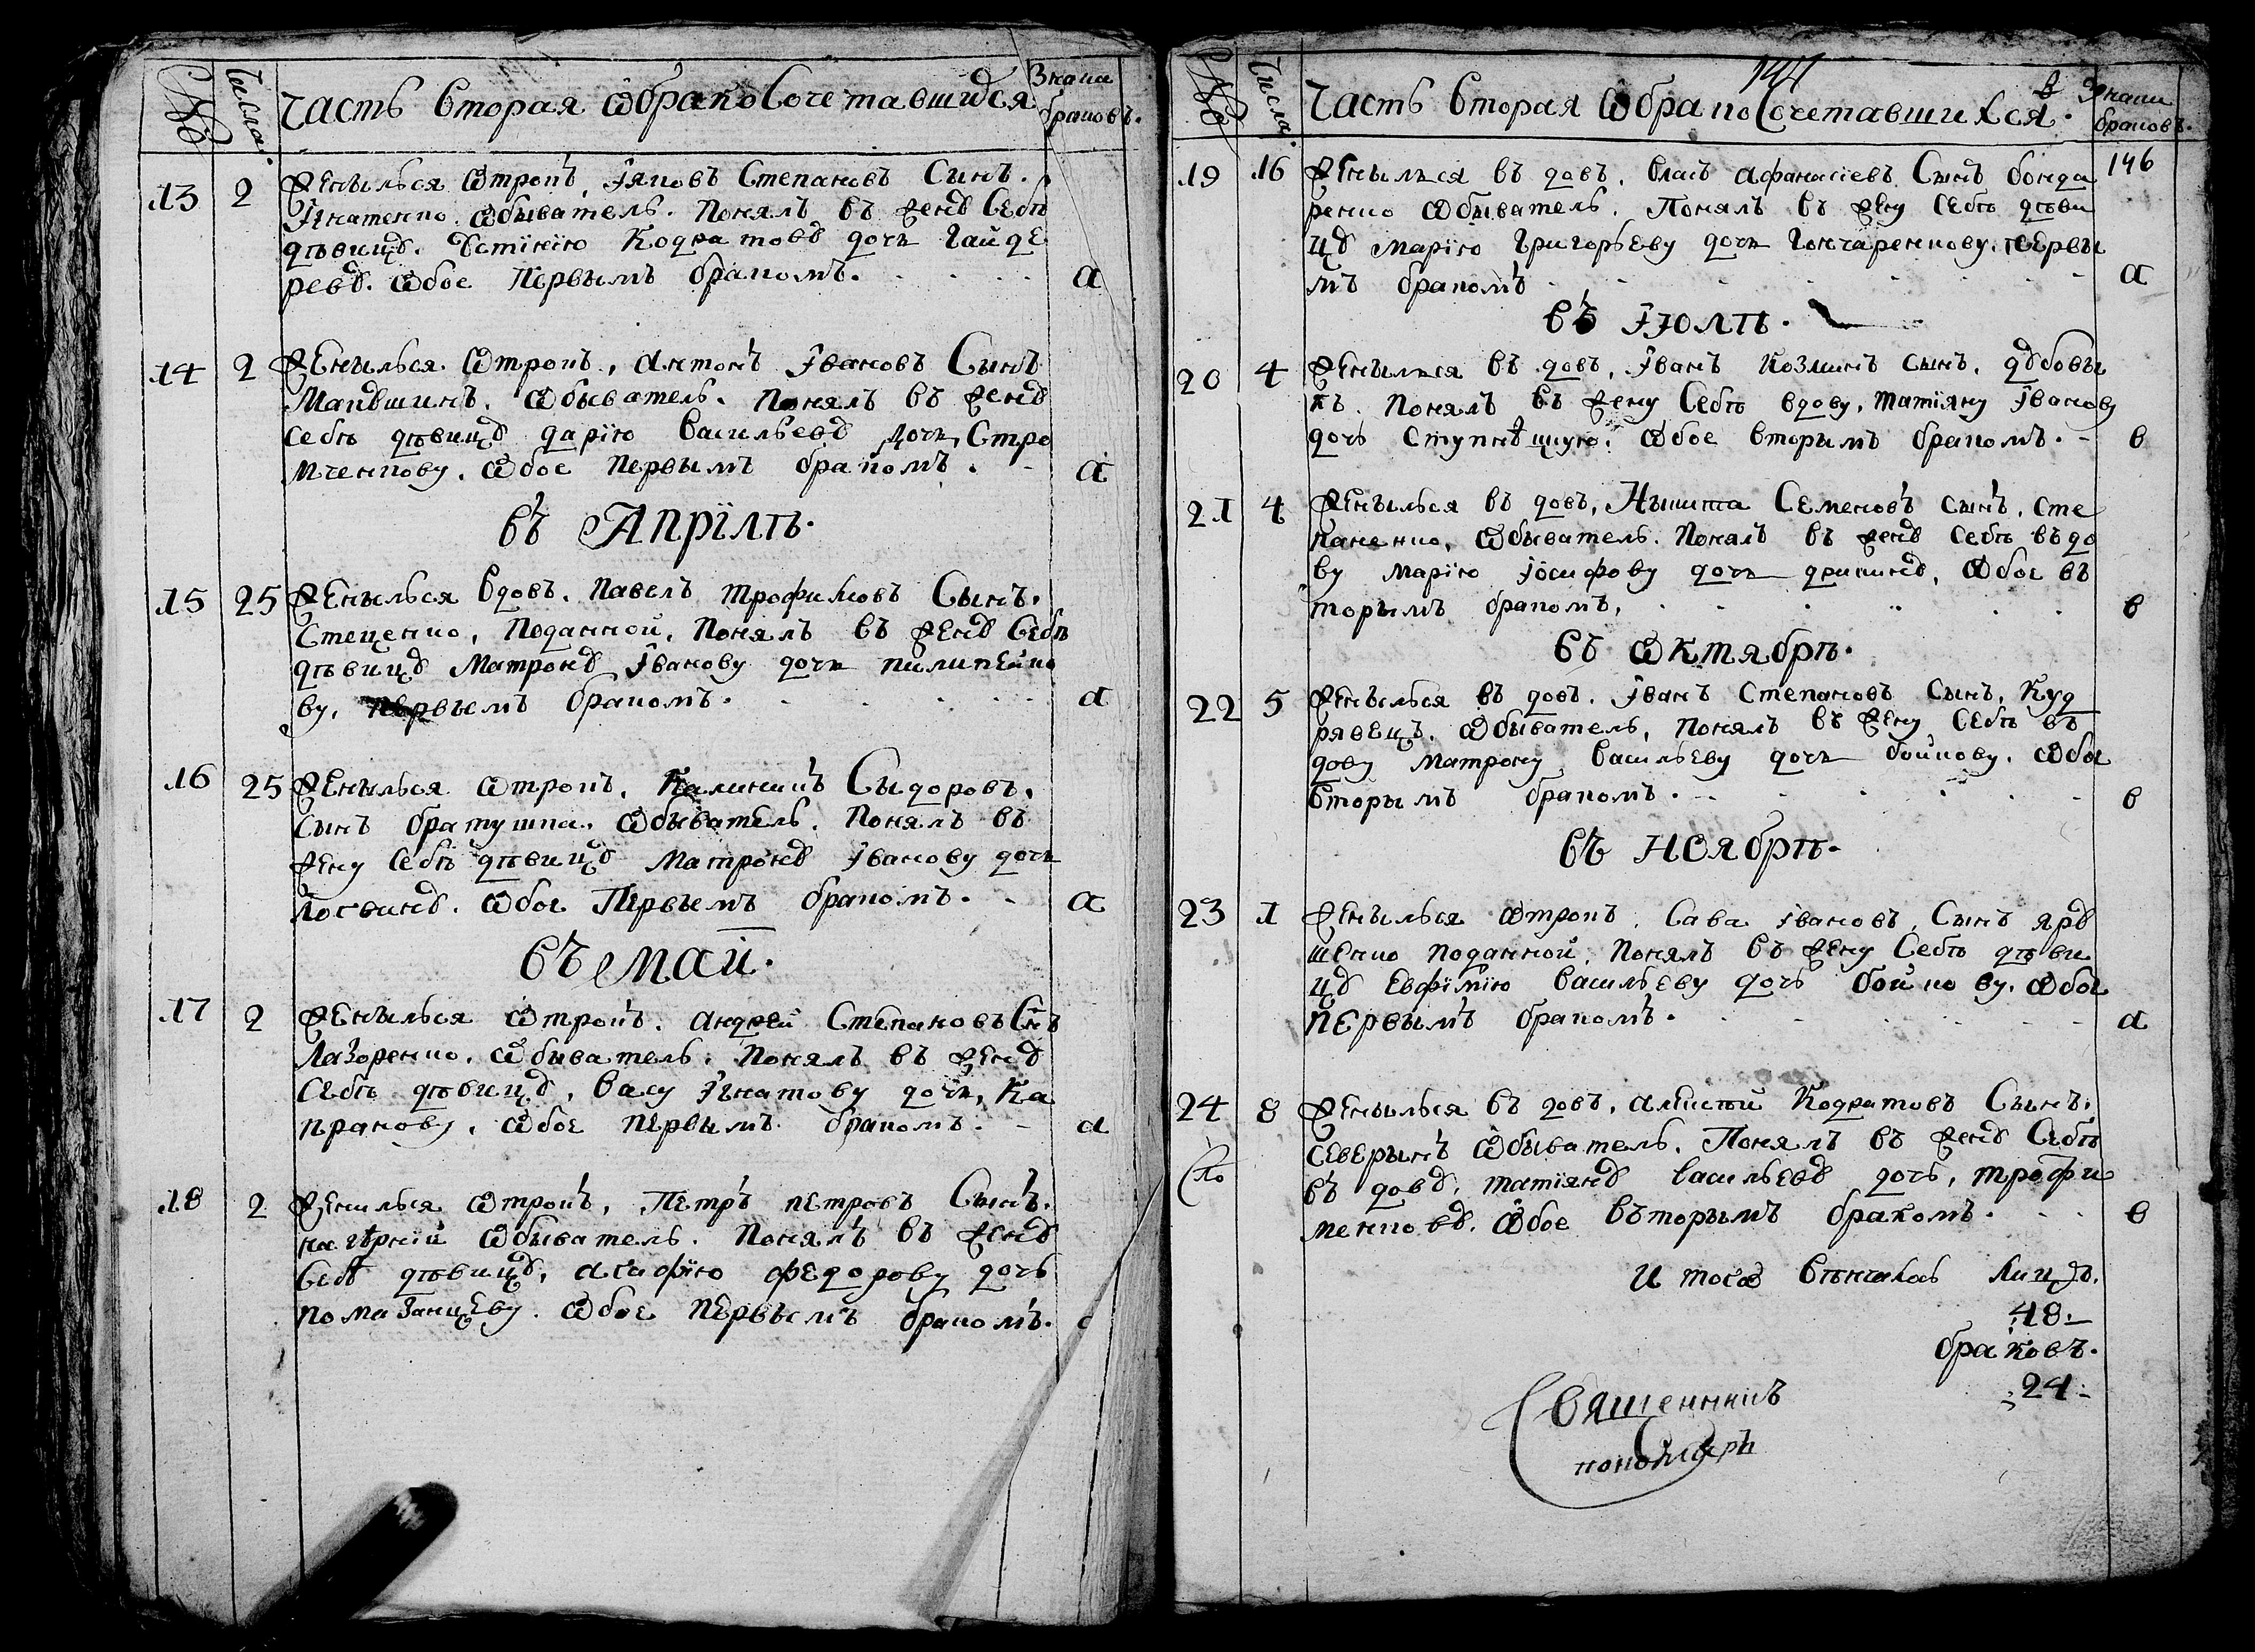 № Числа. Часть вторая ѡбракосочетавшихся Знаки браковъ.
13 2 Женылься ѿтрокъ, Іяковъ Степановъ Сынъ.
Ігнатенко. ѡбыватель. Понялъ въ женꙋ Себѣ
дѣвицꙋ. Устінію Кодратовꙋ дочь Гайде
ревꙋ. ѡбое Первымъ бракомъ. а
14 2 Женылься ѿтрокъ, антонъ Івановъ Сынъ
Макꙋшинъ. ѡбыватель. Понялъ въ женꙋ
Себѣ дѣвицꙋ дарію Васильевꙋ дочь, Стро
мченкову. ѡбое Первымъ бракомъ. а
въ Апрілѣ.
15 25 Женылься Вдовъ. Павелъ Трофимовъ Сынъ.
Стеценко, Поданной, Понялъ въ женꙋ Себѣ
дѣвицꙋ Матронꙋ Іванову дочь пилипейко
ву, первыемъ бракомъ. а
16 25 Женылься ѿтрокъ, Калиникъ Сыдоровъ.
Сынъ братушка. ѡбыватель. Понялъ въ
жену Себѣ дѣвицꙋ Матронꙋ Іванову дочь
Лосвинꙋ. ѡбое Первыемъ бракомъ. а
въ май.
17 2 Женылься ѿтрокъ. андрей Степановъ Снъ
Лазоренко. ѡбыватель. Понялъ въ женꙋ
Себѣ дѣвицꙋ, Васу Ігнатову дочь, Ка
пранову, ѡбое первымъ бракомъ. а
18 2 Женилься ѿтрокъ, Петръ петровъ Сынъ.
нагѣрній ѡбыватель. Понялъ въ женꙋ
Себѣ дѣвицꙋ, агафію федорову дочь
помазанцеву. ѡбое первыемъ бракомъ.
144
№ Числа. Часть вторая ѡбракосочетавшихся. Знаки браковъ.
19 16 Женылься въ довъ, власъ афанасіевъ Сынъ бонда 146
ренко ѡбыватель. Понялъ въ жену Себѣ дѣви
цꙋ Марію Григорьеву дочь Гончаренкову. первы
мъ бракомъ а
въ Іюлѣ.
20 4 Женылься въ довъ, Іванъ козминъ сынъ, дꙋбовы
къ. Понялъ въ жену Себѣ вдову, татіяну Іванову
дочь Ступнѣцкую. ѡбое вторымъ бракомъ. в
21 4 Женылься въ довъ, Нькита Семеновъ сынъ, Сте
паненко, ѡбыватель. Понялъ въ женꙋ Себѣ въдо
ву марію Іосифову дочь дкикинꙋ, ѡбое въ
торымъ бракомъ, в
въ ѡктябрѣ.
22 5 Женылься въ довъ. Іванъ Степановъ Сынъ, Куд
рявецъ. ѡбыватель, Понялъ въ жену Себѣ въ
дову матрону Васильеву дочь бойкову. ѡбое
вторымъ бракомъ. в
въ ноябрѣ.
23 1 Женылься ѿтрокъ. Сава Івановъ Сынъ ярꙋ
шенко поданной, Понялъ въ жену Себѣ дѣви
цꙋ Евфімію Васильеву дочь бойкову. ѡбое
первымъ бракомъ. а
24 8 Женылься въ довъ, алексѣй Кодратовъ Сынъ,
северынъ ѡбыватель, Понялъ въ женꙋ Себѣ
въ довꙋ, татіянꙋ Васильевꙋ дочь, трофи
менковꙋ. ѡбое въторымъ бракомъ. в
Итого Вѣнчалось Лицъ.
48
браковъ.
24
Священникъ
пономаръ